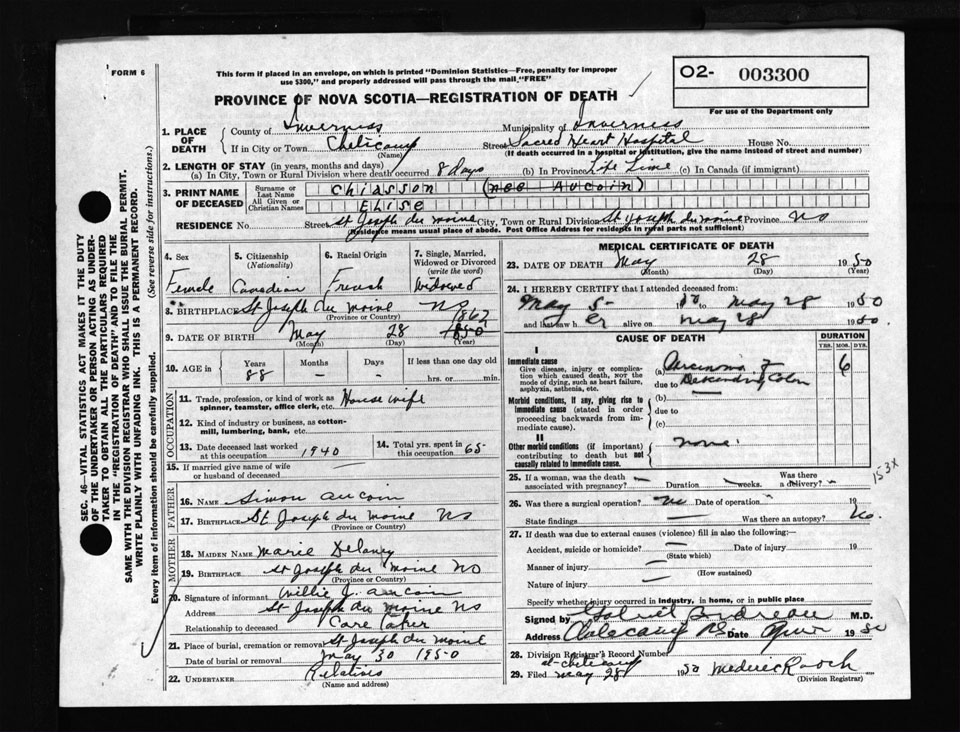 FORM 6
This form if placed in an envelope, on which is printed "Dominion Statistics—Free, penalty for improper
use $300," and properly addressed will pass through the mail, "FREE"
O2- 003300
For use of the Department only
PROVINCE OF NOVA SCOTIA—REGISTRATION OF DEATH
SEC. 46—VITAL STATISTICS ACT MAKES IT THE DUTY
OF THE UNDERTAKER OR PERSON ACTING AS UNDER-
TAKER TO OBTAIN ALL THE PARTICULARS REQUIRED
IN THE "REGISTRATION OF DEATH" AND TO FILE THE
SAME WITH THE DIVISION REGISTRAR WHO SHALL ISSUE THE BURIAL PERMIT.
WRITE PLAINLY WITH UNFADING INK. THIS IS A PERMANENT RECORD.
Every item of information should be carefully supplied. (See reverse side for instructions.)
1. PLACE OF DEATH County of Inverness Municipality of Inverness
If in City or Town Cheticamp (Name) Street Sacred Heart Hospital House No.
(If death occurred in a hospital or institution, give the name instead of street and number)
2. LENGTH OF STAY (in years, months and days)
(a) In City, Town or Rural Division where death occurred 8 days (b) In Province Life Time (c) In Canada (if immigrant)
3. PRINT NAME OF DECEASED Surname or Last Name Chiasson (nee Aucoin)
All Given or Christian Names Elise
RESIDENCE No. Street St Joseph du Moine City, Town or Rural Division St Joseph du Moine Province NS
(Residence means usual place of abode. Post Office Address for residents in rural parts not sufficient)
4. Sex Female
5. Citizenship (Nationality) Canadian
6. Racial Origin French
7. Single, Married, Widowed or Divorced (write the word) Widowed
8. BIRTHPLACE St Joseph du Moine NS (Province or Country)
9. DATE OF BIRTH May (Month) 28 (Day) 1862 (Year)
10. AGE in Years 88 Months – Days – If less than one day old hrs. or min.
OCCUPATION
11. Trade, profession, or kind of work as spinner, teamster, office clerk, etc. House wife
12. Kind of industry or business, as cotton-mill, lumbering, bank, etc.
13. Date deceased last worked at this occupation 1940
14. Total yrs. spent in this occupation 65
15. If married give name of wife or husband of deceased
FATHER
16. NAME Simon Aucoin
17. BIRTHPLACE St Joseph du Moine NS (Province or Country)
MOTHER
18. MAIDEN NAME Marie Delaney
19. BIRTHPLACE St Joseph du Moine NS (Province or Country)
20. Signature of informant Willie J. Aucoin
Address St Joseph du Moine NS
Relationship to deceased Care Taker
21. Place of burial, cremation or removal St Joseph du Moine
Date of burial or removal May 30 1950
22. UNDERTAKER Relatives (Name and address)
MEDICAL CERTIFICATE OF DEATH
23. DATE OF DEATH May (Month) 28 (Day) 1950 (Year)
24. I HEREBY CERTIFY that I attended deceased from:
May 5- 50 to May 28 1950
and last saw her alive on May 28 1950.
CAUSE OF DEATH DURATION
YRS. MOS. DYS.
I
Immediate cause
Give disease, injury or complication which caused death, not the mode of dying, such as heart failure, asphyxia, asthenia, etc.
(a) Carcinoma of 6
due to Descending Colon
Morbid conditions, if any, giving rise to immediate cause (stated in order proceeding backwards from immediate cause).
(b)
due to
(c)
II
Other morbid conditions (if important) contributing to death but not causally related to immediate cause. None.
153x
25. If a woman, was the death associated with pregnancy? – Duration – weeks. Was there a delivery? –
26. Was there a surgical operation? No Date of operation – 19
State findings – Was there an autopsy? No.
27. If death was due to external causes (violence) fill in also the following:
Accident, suicide or homicide? – (State which) Date of injury 19
Manner of injury – (How sustained)
Nature of injury –
Specify whether injury occurred in industry, in home, or in public place
Signed by Gabriel Boudreau M.D.
Address Cheticamp NS Date 1950
28. Division Registrar's Record Number
at Cheticamp
29. Filed May 28 1950 (Division Registrar)